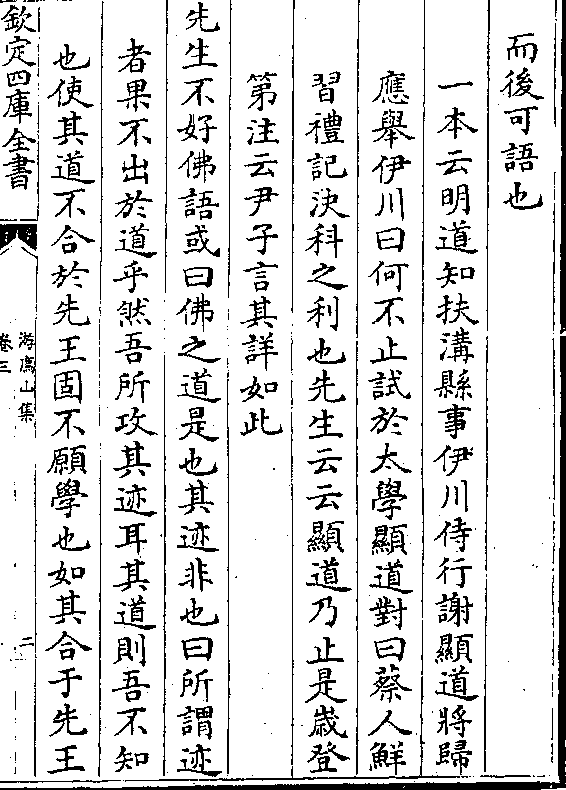 而後可語也
一本云明道知扶溝縣事伊川侍行謝顯道將歸
應舉伊川曰何不止試於太學顯道對曰蔡人鮮
習禮記決科之利也先生云云顯道乃止是歲登
第注云尹子言其詳如此
先生不好佛語或曰佛之道是也其迹非也曰所謂迹
者果不出於道乎然吾所攻其迹耳其道則吾不知
也使其道不合於先王固不願學也如其合于先王
欽定四庫全書
游廌山集
卷三
二